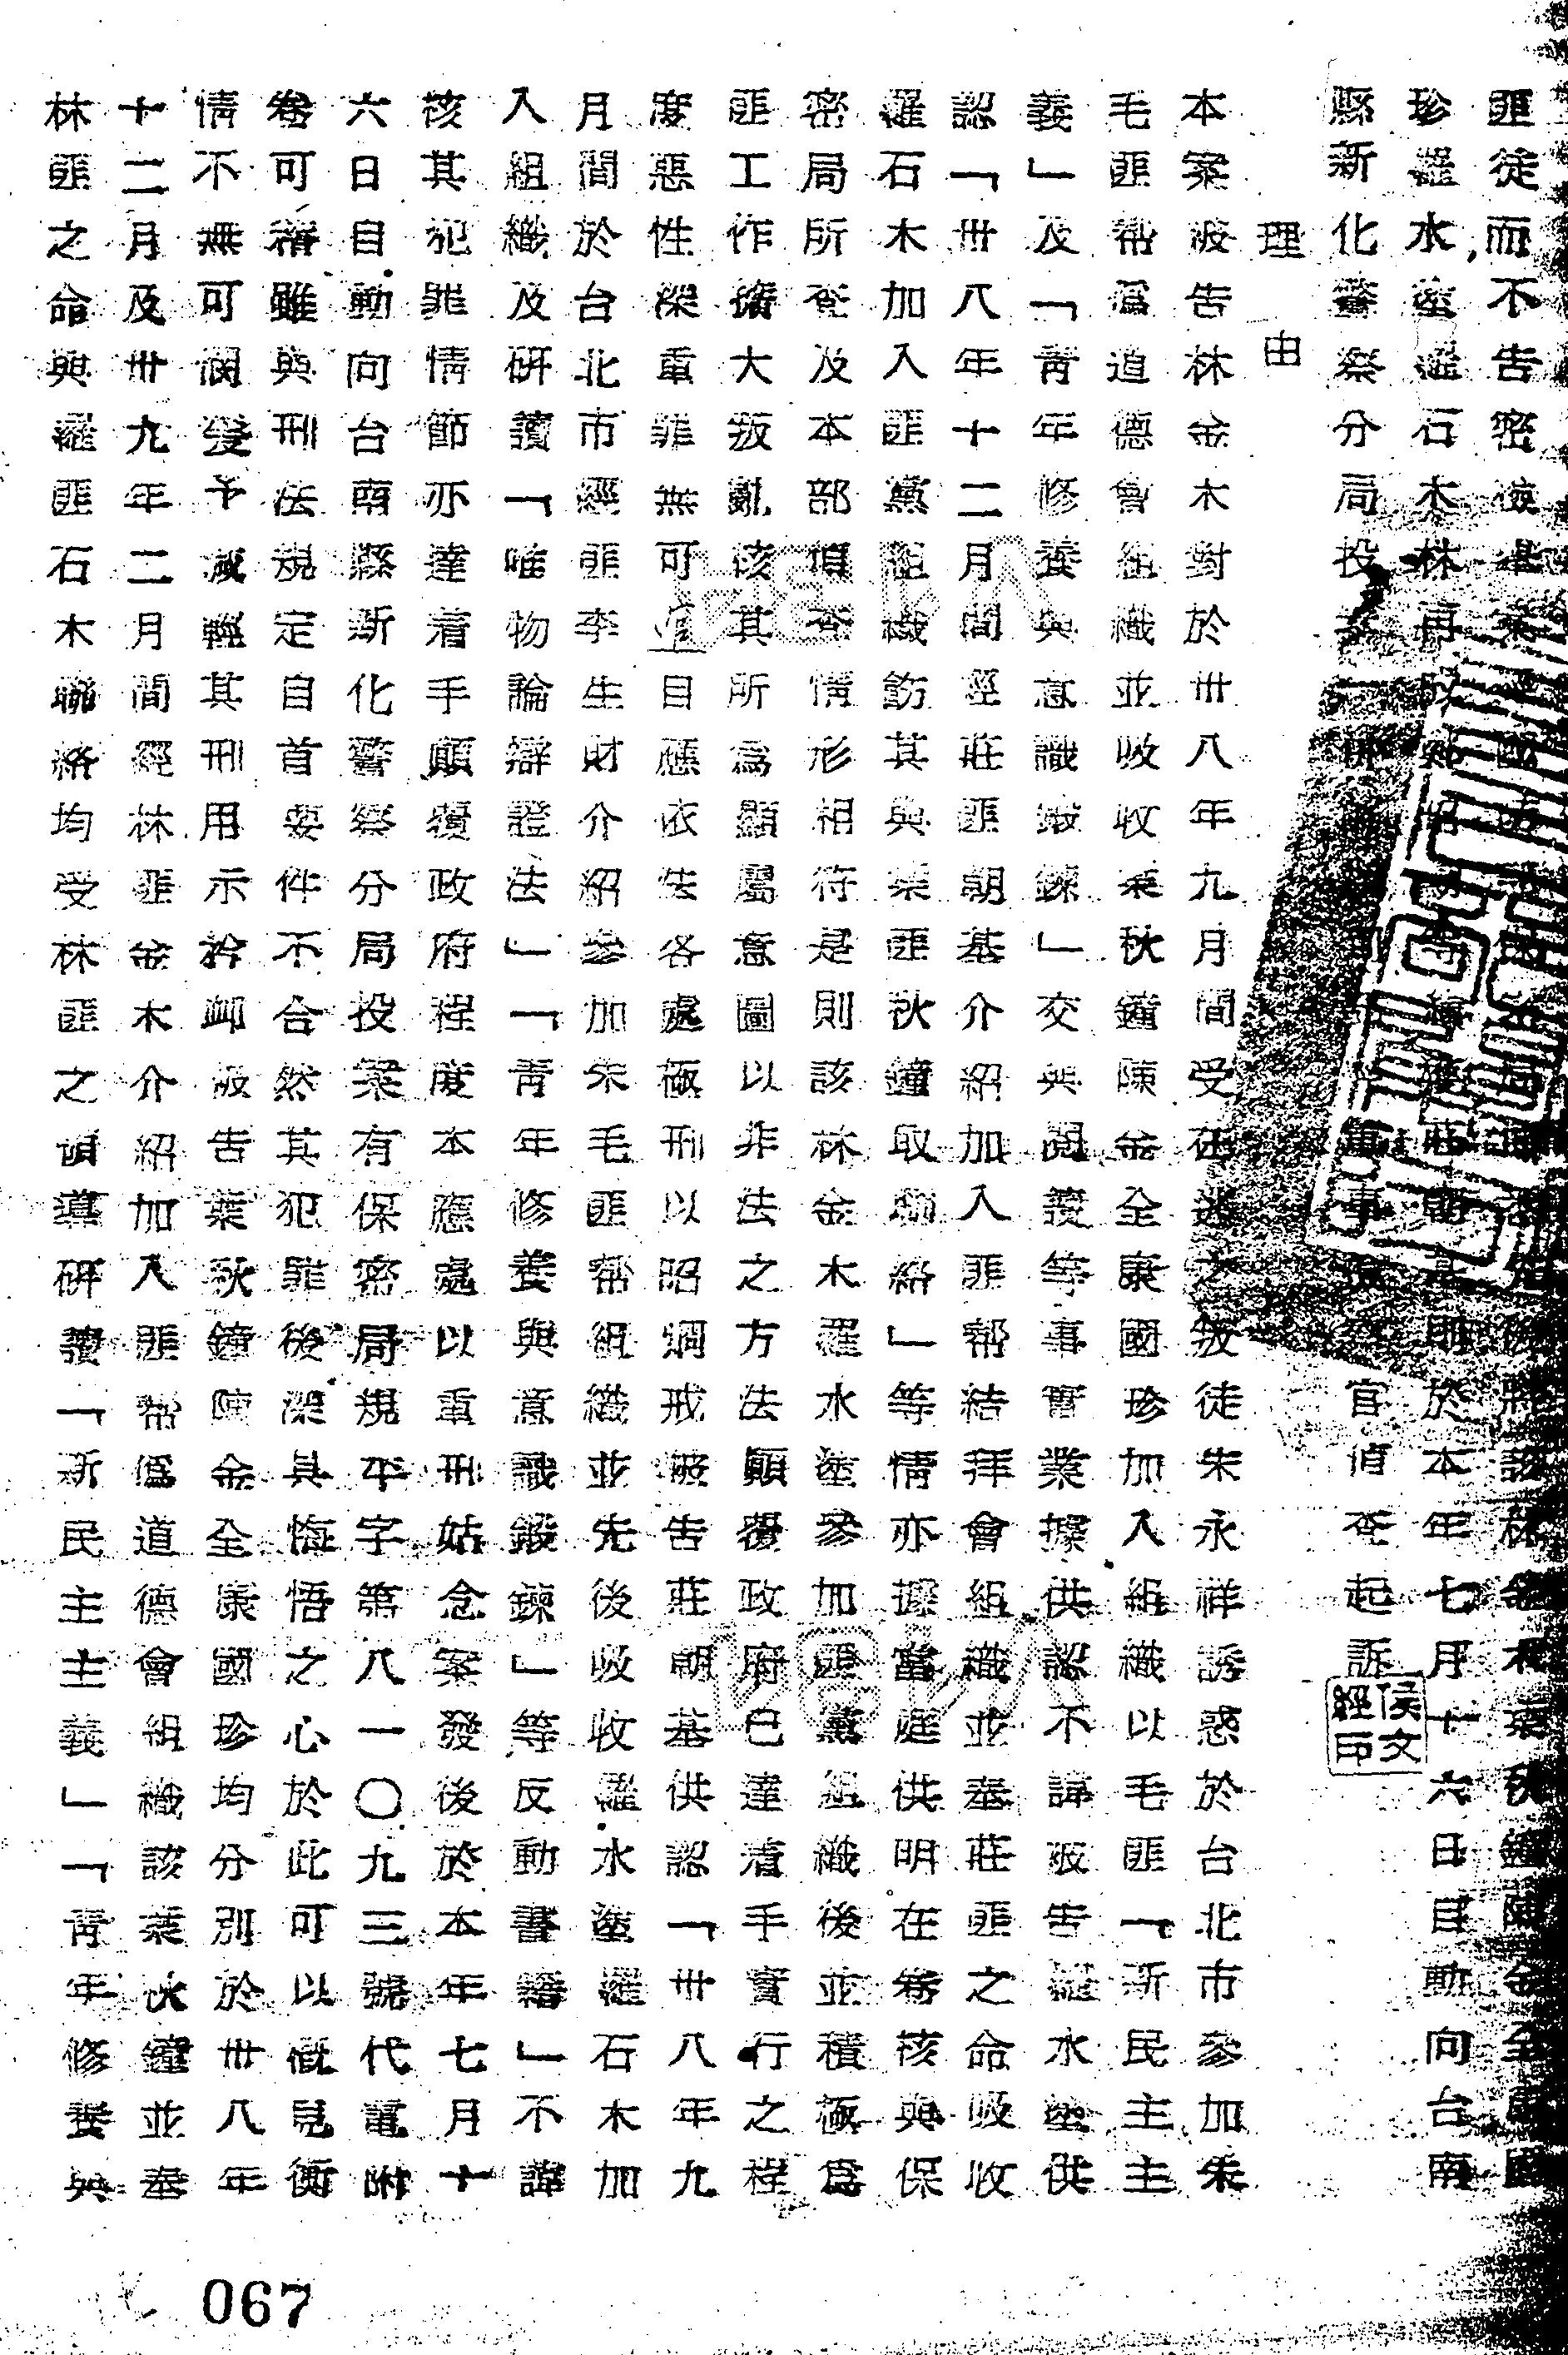 匪徒而不告密
珍羅水塗羅石木林再 於本年七月十六日自動向台南
縣新化警察分局投 官偵查起訴
侯文經印
理由
本案被告林金木對於卅八年九月間受在逃之叛徒朱永祥誘惑於台北市參加朱
毛匪幫偽道德會組織並吸收葉秋鐘陳金全康國珍加入組織以毛匪「新民主主
義」及「青年修養與意識鍛鍊」交與閱讀等事實業據供認不諱被告羅水塗供
認「卅八年十二月間經莊匪朝基介紹加入匪幫結拜會組織並奉莊匪之命吸收
羅石木加入匪黨組織飭其與葉匪秋鐘取聯絡」等情亦據當庭供明在卷核與保
密局所查及本部偵查情形相符是則該林金木羅水塗參加匪黨組織後並積極為
匪工作擴大叛亂該其所為顯屬意圖以非法之方法顛覆政府已達着手實行之程
度惡性深重罪無可逭自應依法各處極刑以昭烱戒被告莊朝基供認「卅八年九
月間於台北市經匪李生財介紹參加朱毛匪幫組織並先後吸收羅水塗羅石木加
入組織及研讀「唯物論辯證法」「青年修養與意識鍛鍊」等反動書籍」不諱
核其犯罪情節亦達着手顛覆政府程度本應處以重刑姑念案發後於本年七月十
六日自動向台南縣新化警察分局投案有保密局規平字第八一〇九三號代電附
卷可稽雖與刑法規定自首要件不合然其犯罪後深其悔悟之心於此可以概見衡
情不無可憫爰予減輕其刑用示矜卹被告葉秋鐘陳金全康國珍均分別於卅八年
十二月及卅九年二月間經林匪金木介紹加入匪幫偽道德會組織該葉秋鐘並奉
林匪之命與羅匪石木聯絡均受林匪之領導研讀「新民主主義」「青年修養與
067